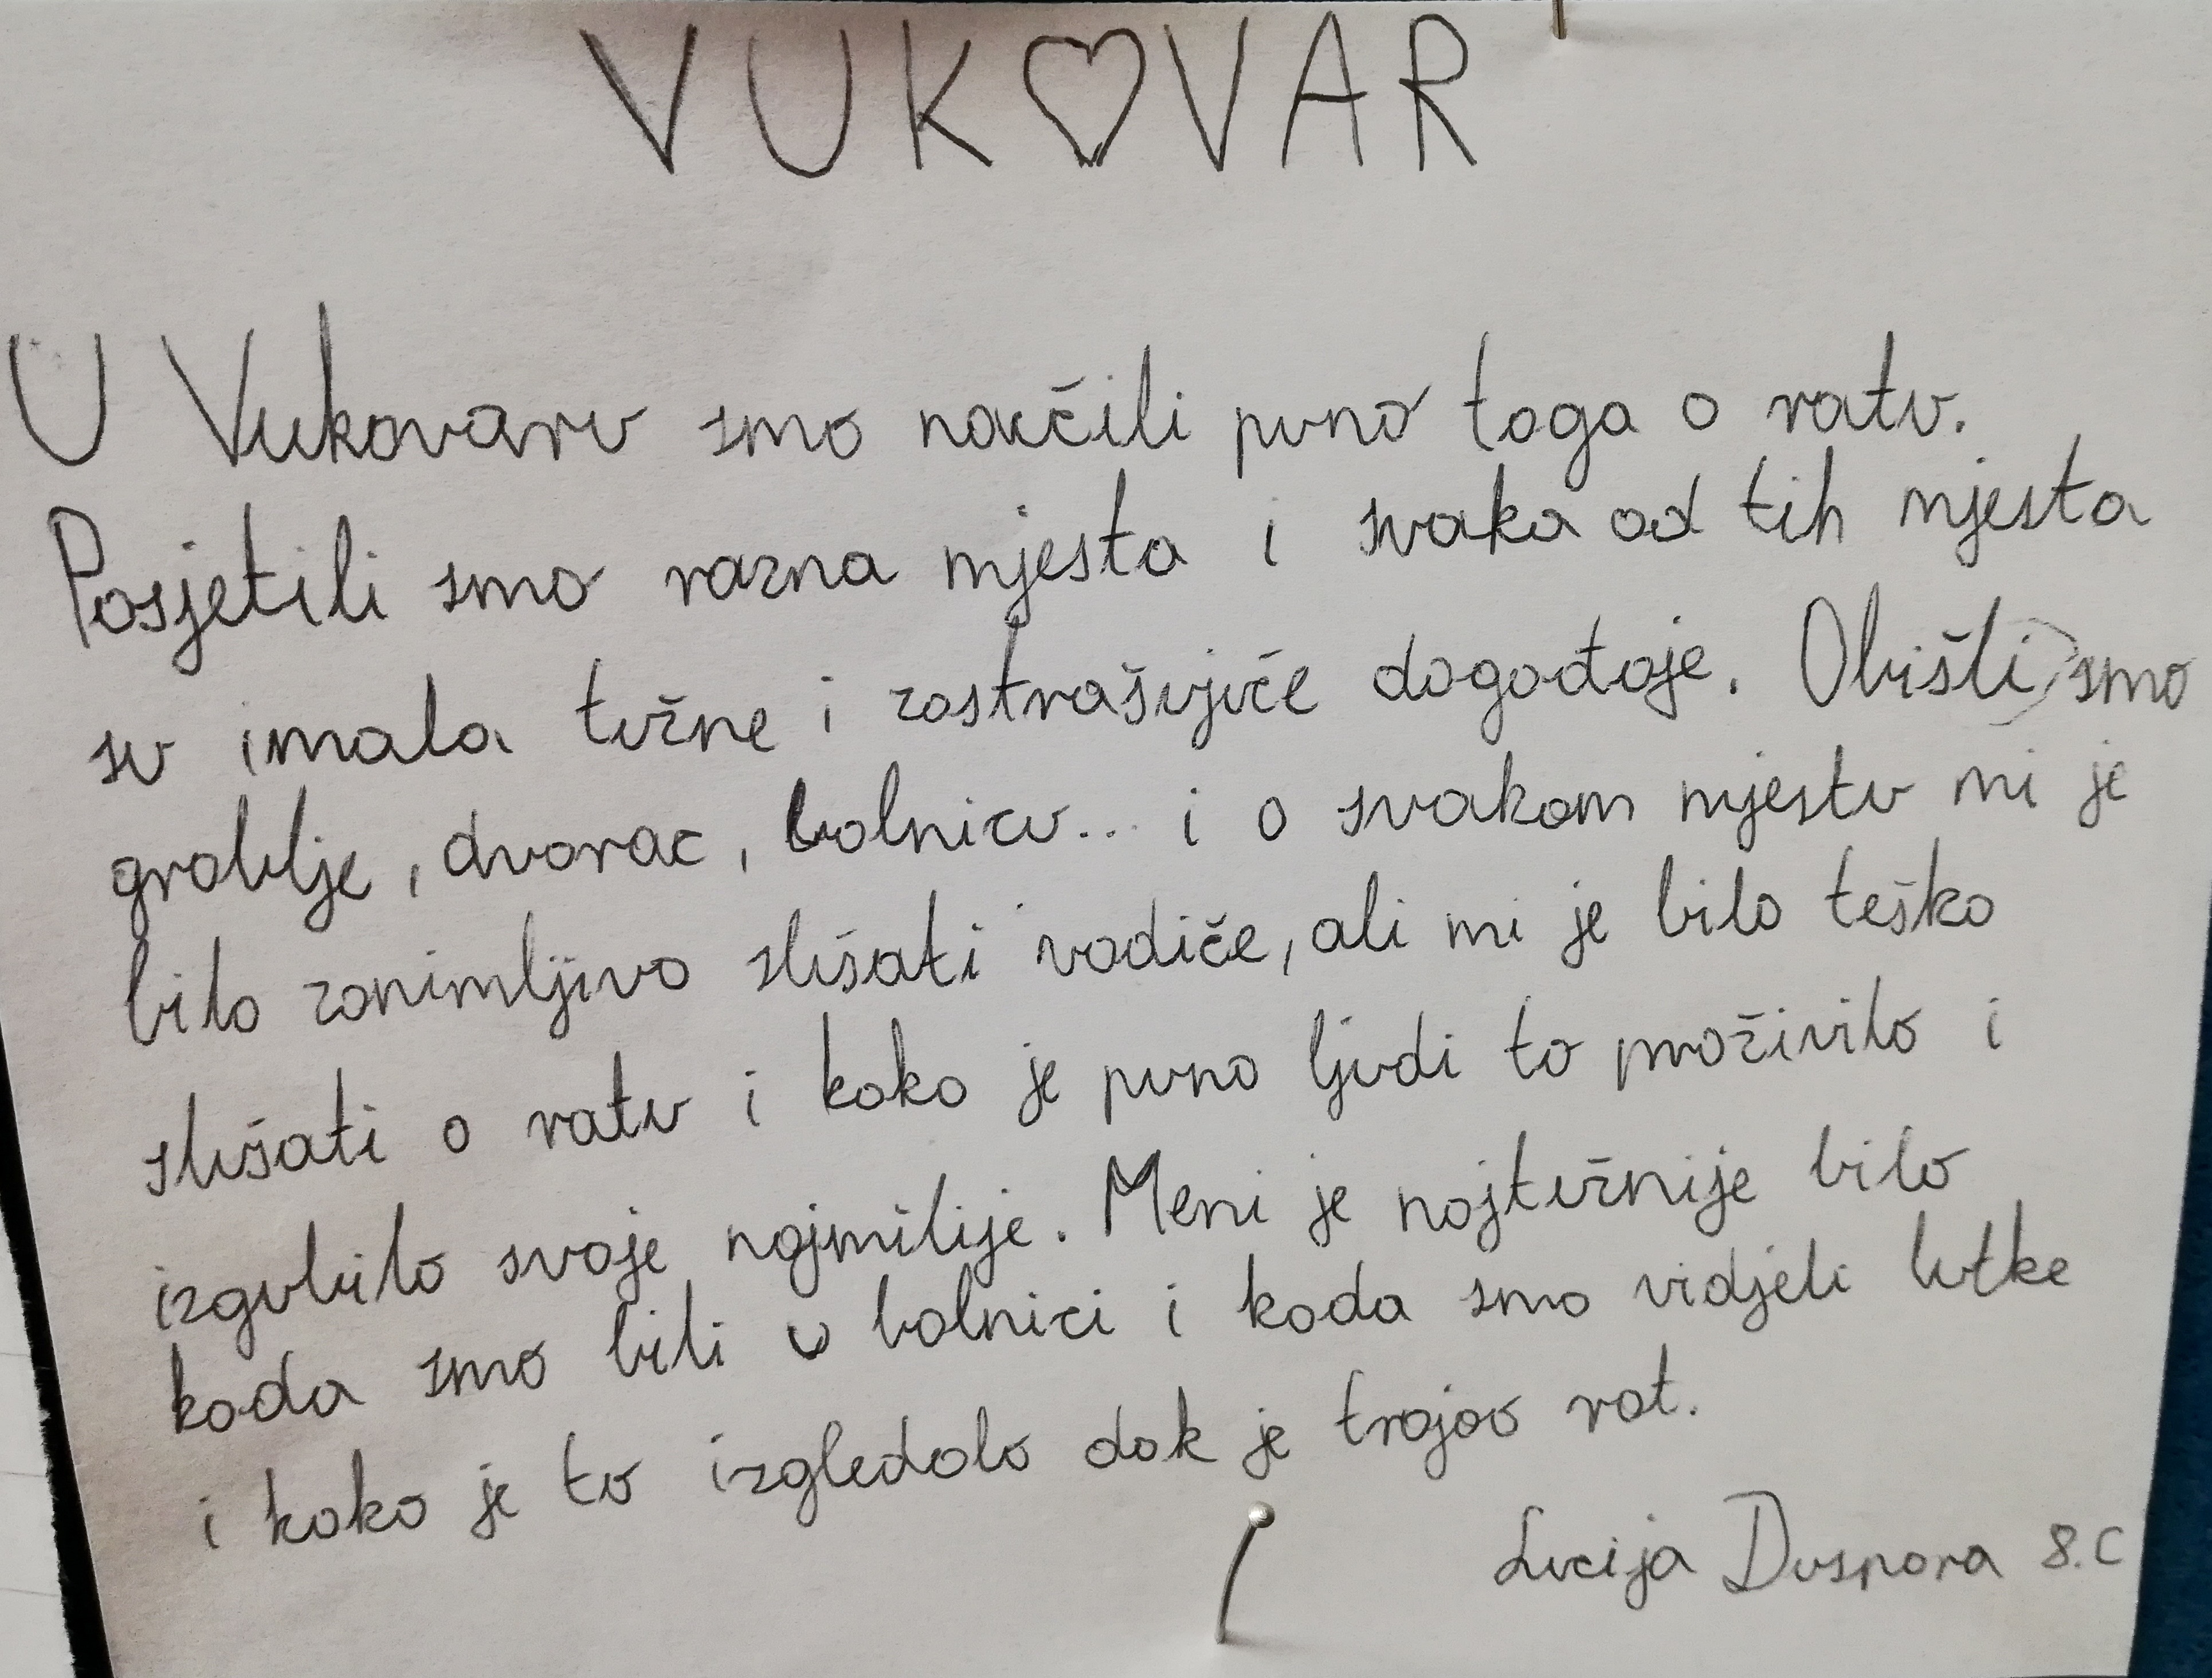 VUK♡VAR
U Vukovaru smo naučili puno toga o ratu.
Posjetili smo razna mjesta i svaka od tih mjesta
su imala tužne i zastrašujuće događaje. Obišli smo
groblje, dvorac, bolnicu... i o svakom mjestu mi je
bilo zanimljivo slušati vodiče, ali mi je bilo teško
slušati o ratu i kako je puno ljudi to proživilo i
izgubilo svoje najmilije. Meni je najtužnije bilo
kada smo bili u bolnici i kada smo vidjeli lutke
i kako je to izgledalo dok je trajao rat.
Lucija Duspara 8.C